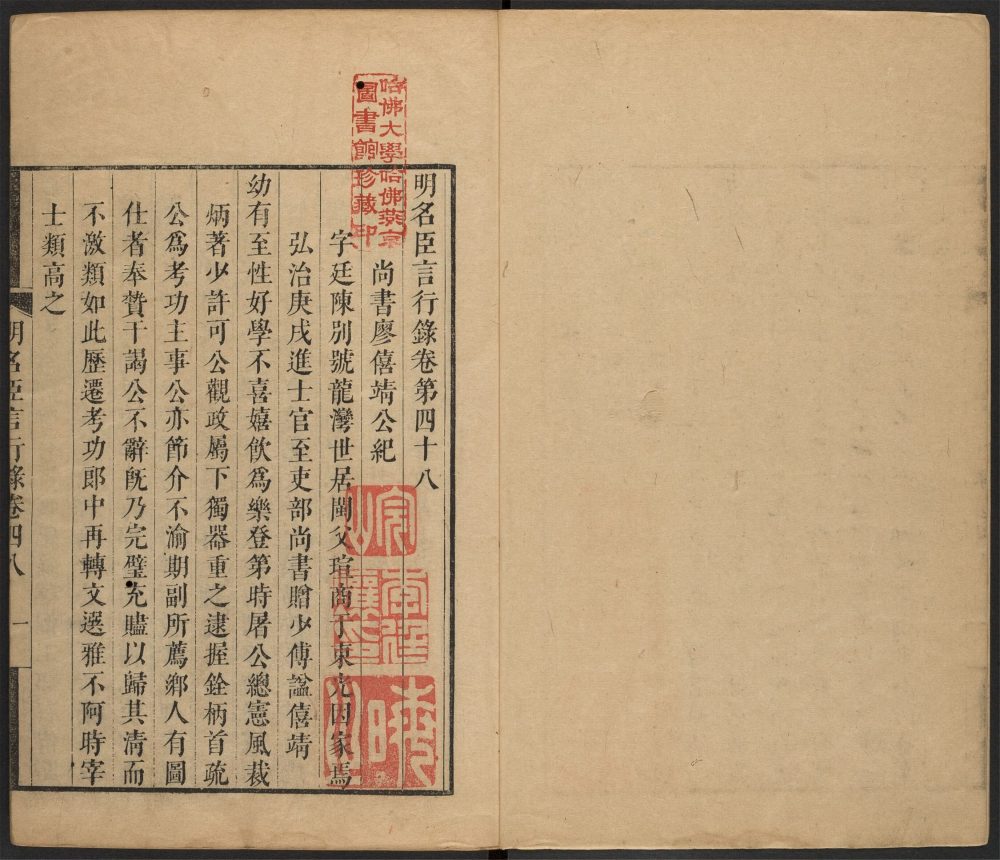 明名臣言行錄卷第四十八
尚書廖僖靖公紀
字廷陳別號龍灣世居閩父瑄商于東光因家焉
弘治庚戌進士官至吏部尚書贈少傅諡僖靖
幼有至性好學不喜嬉飲爲樂登第時屠公總憲風裁
炳著少許可公觀政屬下獨器重之逮握銓柄首疏
公爲考功主事公亦節介不渝期副所薦鄉人有圖
仕者奉贄干謁公不辭旣乃完璧充贐以歸其淸而
不激類如此歷遷考功郎中再轉文選雅不阿時宰
士類高之
明名臣言行錄卷四八
一
哈佛大學哈佛燕京
圖書館珍藏印